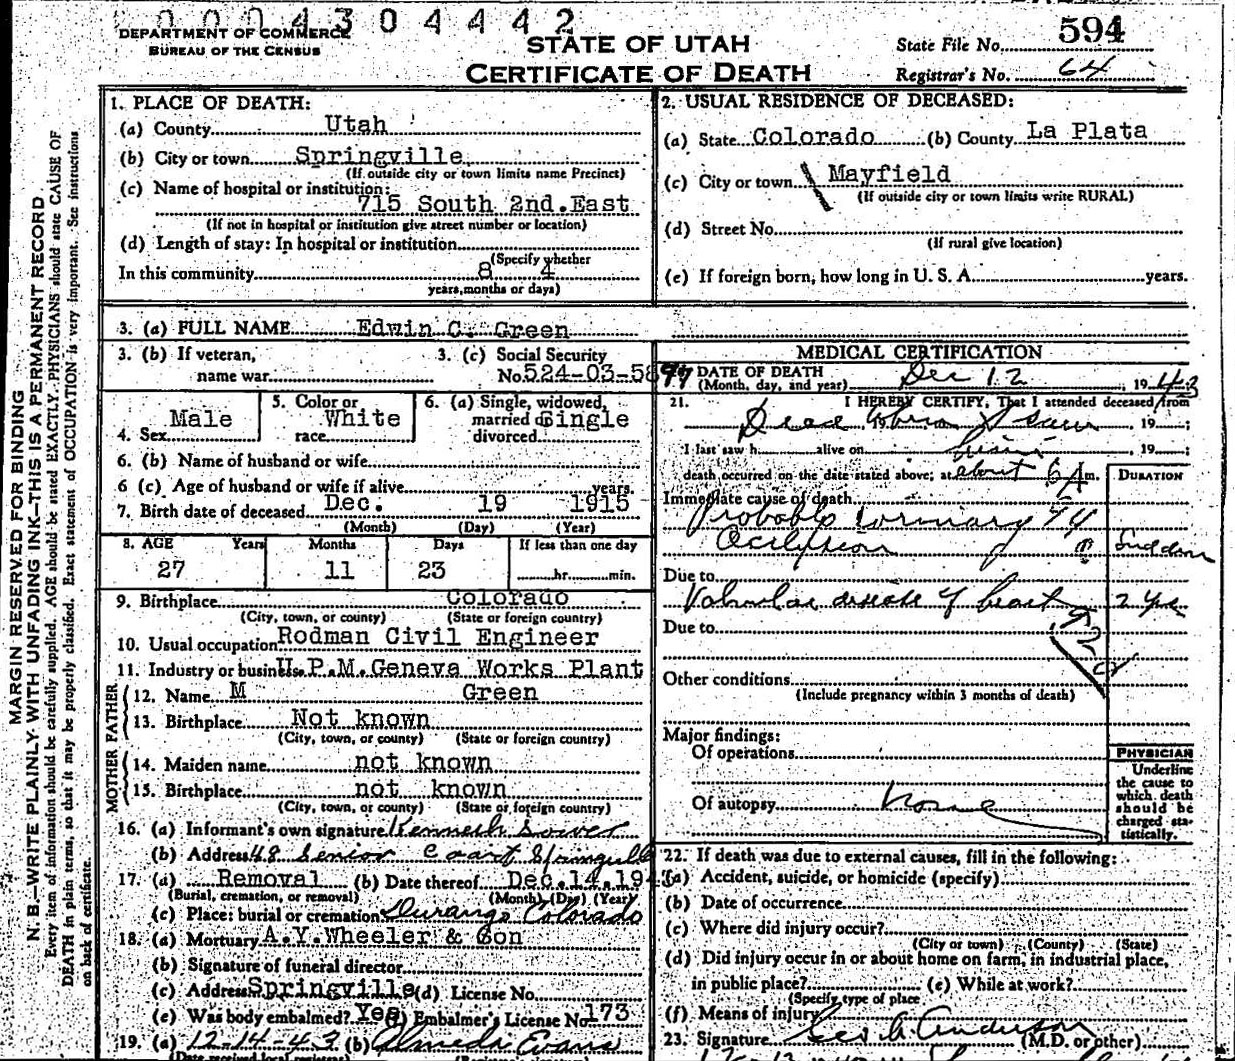 0004304442
DEPARTMENT OF COMMERCE
BUREAU OF THE CENSUS
STATE OF UTAH
CERTIFICATE OF DEATH
State File No. 594
Registrar's No. 64
MARGIN RESERVED FOR BINDING
N. B.—WRITE PLAINLY WITH UNFADING INK—THIS IS A PERMANENT RECORD
Every item of information should be carefully supplied. AGE should be stated EXACTLY. PHYSICIANS should state CAUSE OF
DEATH in plain terms, so that it may be properly classified. Exact statement of OCCUPATION is very important. See instructions
on back of certificate.
1. PLACE OF DEATH:
(a) County Utah
(b) City or town Springville
(If outside city or town limits name Precinct)
(c) Name of hospital or institution:
715 South 2nd.East
(If not in hospital or institution give street number or location)
(d) Length of stay: In hospital or institution
(Specify whether
In this community 8 4
years, months or days)
2. USUAL RESIDENCE OF DECEASED:
(a) State Colorado (b) County La Plata
(c) City or town Mayfield
(If outside city or town limits write RURAL)
(d) Street No.
(If rural give location)
(e) If foreign born, how long in U. S. A. years.
3. (a) FULL NAME Edwin C. Green
3. (b) If veteran,
name war
3. (c) Social Security
No. 524-03-5897
4. Sex Male
5. Color or
race White
6. (a) Single, widowed,
married or Single
divorced
6. (b) Name of husband or wife
6 (c) Age of husband or wife if alive years.
7. Birth date of deceased Dec. 19 1915
(Month) (Day) (Year)
8. AGE Years Months Days If less than one day
27 11 23 hr. min.
9. Birthplace Colorado
(City, town, or county) (State or foreign country)
10. Usual occupation Rodman Civil Engineer
11. Industry or business U.P.M.Geneva Works Plant
FATHER
12. Name M Green
13. Birthplace Not known
(City, town, or county) (State or foreign country)
MOTHER
14. Maiden name not known
15. Birthplace not known
(City, town, or county) (State or foreign country)
16. (a) Informant's own signature Kenneth
(b) Address 48 Senior Court Springville
17. (a) Removal (b) Date thereof Dec.14,194
(Burial, cremation, or removal) (Month) (Day) (Year)
(c) Place: burial or cremation Durango Colorado
18. (a) Mortuary A.Y.Wheeler & Son
(b) Signature of funeral director
(c) Address Springville (d) License No.
(e) Was body embalmed? Yes Embalmer's License No. 173
19. (a) 12-14-43 (b) Almeda Evans
(Date received local registrar)
MEDICAL CERTIFICATION
DATE OF DEATH
(Month, day, and year) Dec 12, 1943
21. I HEREBY CERTIFY, That I attended deceased from
Dead when I saw 19 ;
I last saw h alive on 19 ;
death occurred on the date stated above; at about 6 A m.
DURATION
Immediate cause of death
Probable coronary 94
Occlusion Sudden
Due to
Valvular disease of heart 2 yrs
Due to
92
Other conditions
(Include pregnancy within 3 months of death)
Major findings:
Of operations
Of autopsy None
PHYSICIAN
Underline
the cause to
which death
should be
charged sta-
tistically.
22. If death was due to external causes, fill in the following:
(a) Accident, suicide, or homicide (specify)
(b) Date of occurrence
(c) Where did injury occur?
(City or town) (County) (State)
(d) Did injury occur in or about home on farm, in industrial place,
in public place? (e) While at work?
(Specify type of place
(f) Means of injury
23. Signature Geo A Anderson (M.D. or other)